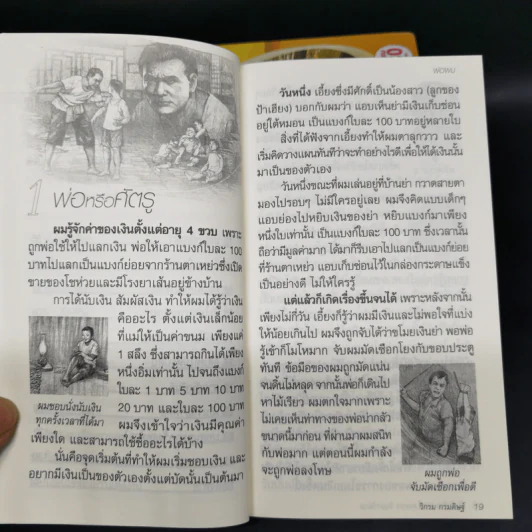 1 พ่อหรือศัตรู
ผมรู้จักค่าของเงินตั้งแต่อายุ 4 ขวบ เพราะ
ถูกพ่อใช้ให้ไปแลกเงิน พ่อให้เอาแบงก์ใบละ 100
บาทไปแลกเป็นแบงก์ย่อยจากร้านตาเหว่ซึ่งเปิด
ขายของโชห่วยและมีโรงยาเส้นอยู่ข้างบ้าน
การได้นับเงิน สัมผัสเงิน ทำให้ผมได้รู้ว่าเงิน
คืออะไร ตั้งแต่เงินเล็กน้อย
ที่แม่ให้เป็นค่าขนม เพียงแค่
1 สลึง ซึ่งสามารถกินได้เพียง
หนึ่งอิ่มเท่านั้น ไปจนถึงแบงก์
ใบละ 1 บาท 5 บาท 10 บาท
20 บาท และใบละ 100 บาท
ผมจึงเข้าใจว่าเงินมีคุณค่า
เพียงใด และสามารถใช้ซื้ออะไรได้บ้าง
นั่นคือจุดเริ่มต้นที่ทำให้ผมเริ่มชอบเงิน และ
อยากมีเงินเป็นของตัวเองตั้งแต่บัดนั้นเป็นต้นมา
ผมชอบนั่งนับเงิน
ทุกครั้งเวลาที่ได้มา
วันหนึ่ง เอี้ยงซึ่งมีศักดิ์เป็นน้องสาว (ลูกของ
ป้าเฮียง) บอกกับผมว่า แอบเห็นย่ามีเงินเก็บซ่อน
อยู่ใต้หมอน เป็นแบงก์ใบละ 100 บาทอยู่หลายใบ
สิ่งที่ได้ฟังจากเอี้ยงทำให้ผมตาลุกวาว และ
เริ่มคิดวางแผนทันทีว่าจะทำอย่างไรดีเพื่อให้ได้เงินนั้น
มาเป็นของตัวเอง
วันหนึ่งขณะที่ผมเล่นอยู่ที่บ้านย่า กวาดสายตา
มองไปรอบๆ ไม่มีใครอยู่เลย ผมจึงคิดแบบเด็กๆ
แอบย่องไปหยิบเงินของย่า หยิบแบงก์มาเพียง
หนึ่งใบเท่านั้น เป็นแบงก์ใบละ 100 บาท ซึ่งเวลานั้น
ถือว่ามีมูลค่ามาก ได้มาก็รีบเอาไปแลกเป็นแบงก์ย่อย
ที่ร้านตาเหว่ แอบเก็บซ่อนไว้ในกล่องกระดาษแข็ง
เป็นอย่างดี ไม่ให้ใครรู้
แต่แล้วก็เกิดเรื่องขึ้นจนได้ เพราะหลังจากนั้น
เพียงไม่กี่วัน เอี้ยงก็รู้ว่าผมมีเงินและไม่พอใจที่แบ่ง
ให้น้อยเกินไป ผมจึงถูกจับได้ว่าขโมยเงินย่า พอพ่อ
รู้เข้าก็โมโหมาก จับผมมัดเชือกโยงกับขอบประตู
ทันที ข้อมือของผมถูกมัดแน่น
จนดิ้นไม่หลุด จากนั้นพ่อก็เดินไป
หาไม้เรียว ผมตกใจมากเพราะ
ไม่เคยเห็นท่าทางของพ่อน่ากลัว
ขนาดนี้มาก่อน ที่ผ่านมาผมสนิท
กับพ่อมาก แต่ตอนนี้ผมกำลัง
จะถูกพ่อลงโทษ
ผมถูกพ่อ
จับมัดเชือกเพื่อตี
วิกรม กรมดิษฐ์ 19